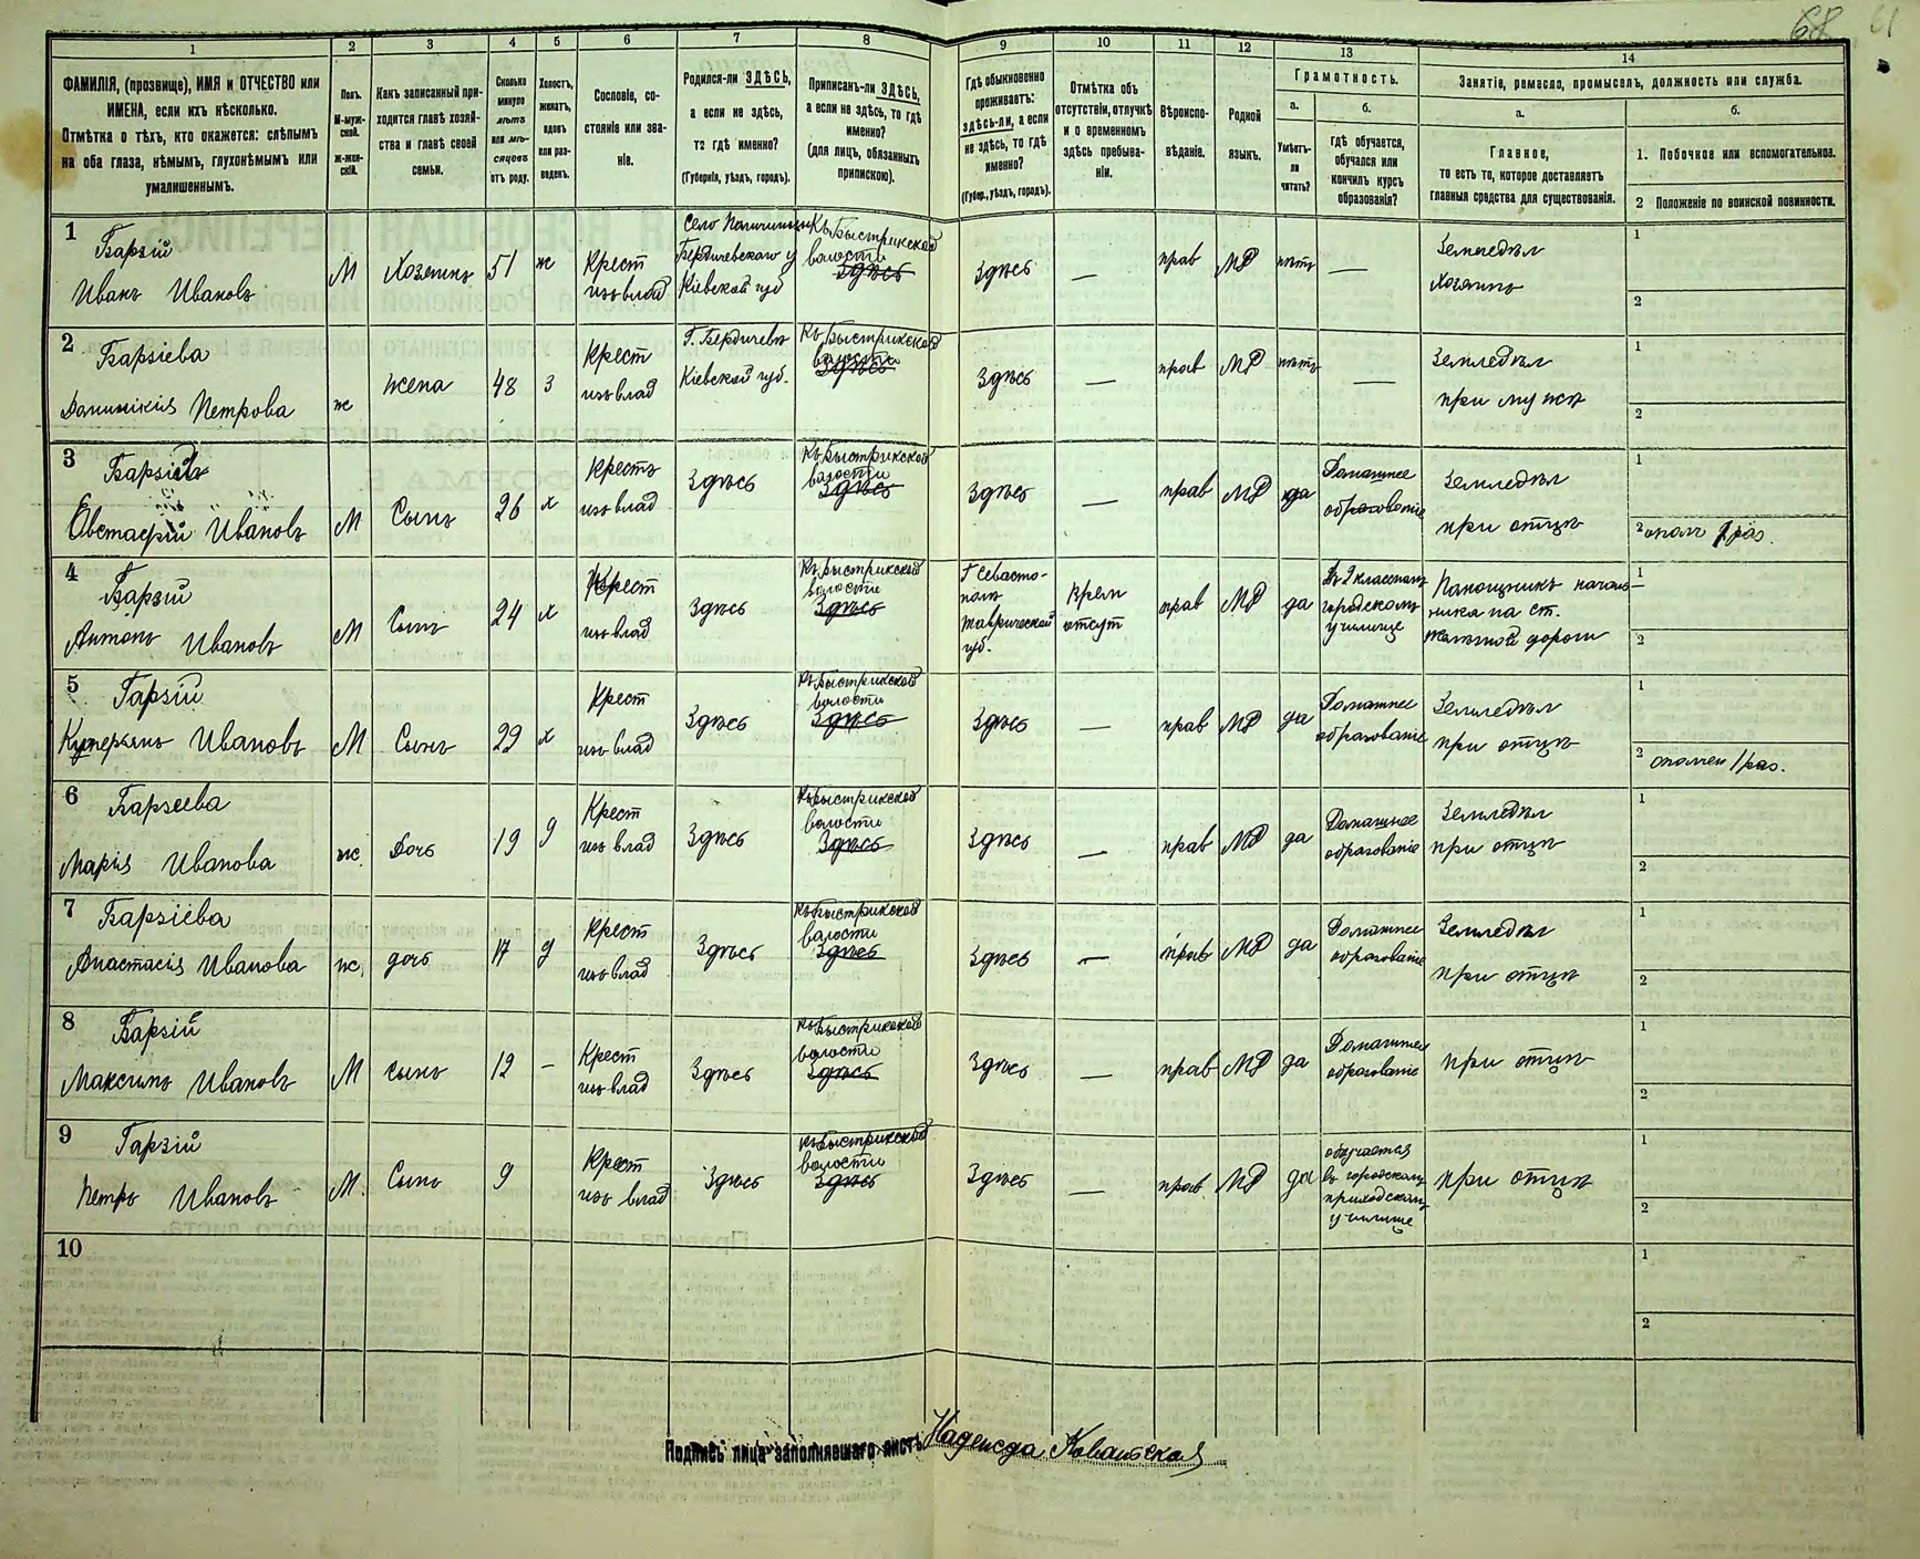 68 61
1 2 3 4 5 6 7 8 9 10 11 12 13 14
ФАМИЛІЯ, (прозвище), ИМЯ и ОТЧЕСТВО или
ИМЕНА, если ихъ нѣсколько.
Отмѣтка о тѣхъ, кто окажется: слѣпымъ
на оба глаза, нѣмымъ, глухонѣмымъ или
умалишеннымъ.
Полъ.
М-муж-
ской.
ж-жен-
скій.
Какъ записанный при-
ходится главѣ хозяй-
ства и главѣ своей
семьи.
Сколько
минуло
лѣтъ
или мѣ-
сяцевъ
отъ роду.
Холостъ,
женатъ,
вдовъ
или раз-
веденъ.
Сословіе, со-
стояніе или зва-
ніе.
Родился-ли ЗДѢСЬ,
а если не здѣсь,
то гдѣ именно?
(Губернія, уѣздъ, городъ).
Приписанъ-ли ЗДѢСЬ,
а если не здѣсь, то гдѣ
именно?
(для лицъ, обязанныхъ
припискою).
Гдѣ обыкновенно
проживаетъ:
здѣсь-ли, а если
не здѣсь, то гдѣ
именно?
(Губер., уѣздъ, городъ).
Отмѣтка объ
отсутствіи, отлучкѣ
и о временномъ
здѣсь пребыва-
ніи.
Вѣроиспо-
вѣданіе.
Родной
языкъ.
Грамотность.
а.
Умѣетъ-
ли
читать?
б.
гдѣ обучается,
обучался или
кончилъ курсъ
образованія?
Занятіе, ремесло, промыселъ, должность или служба.
а.
Главное,
то есть то, которое доставляетъ
главныя средства для существованія.
б.
1. Побочное или вспомогательное.
2 Положеніе по воинской повинности.
1 Барзій
Иванъ Ивановъ
М Хозяинъ 51 ж
Крест
изъ влад
Бердичевскаго у
Кіевской губ
Къ Быстрикской
волости
Здѣсь
Здѣсь — прав МР нѣтъ —
Земледѣл
Хозяинъ
1
2
2 Барзіева
Доминикія Петрова
ж жена 48 З
Крест
изъ влад
Г. Бердичевъ
Кіевской губ.
Къ Быстрикской
волости
Здѣсь
Здѣсь — прав МР нѣтъ —
Земледѣл
при мужѣ
1
2
3 Барзіевъ
Евстафій Ивановъ
М Сынъ 26 х
Крестъ
изъ влад
Здѣсь
Къ Быстрикской
волости
Здѣсь
Здѣсь — прав МР да
Домашнее
образованіе
Земледѣл
при отцѣ
1
2 ополч 1 раз.
4 Барзій
Антонъ Ивановъ
М Сынъ 24 х
Крест
изъ влад
Здѣсь
Къ Быстрикской
волости
Здѣсь
Г Севасто-
поль
Таврической
губ.
Врем
отсут
прав МР да
Въ 2 классномъ
городскомъ
училище
Помощникъ началь
ника на ст.
желѣзной дороги
1 —
2
5 Барзій
Куперьянъ Ивановъ
М Сынъ 22 х
Крест
изъ влад
Здѣсь
Къ Быстрикской
волости
Здѣсь
Здѣсь — прав МР да
Домашнее
образованіе
Земледѣл
при отцѣ
1
2 ополчен 1 раз.
6 Барзеева
Марія Иванова
ж. Дочь 19 д
Крест
изъ влад
Здѣсь
Къ Быстрикской
волости
Здѣсь
Здѣсь — прав МР да
Домашнее
образованіе
Земледѣл
при отцѣ
1
2
7 Барзіева
Анастасія Иванова
ж. дочь 17 д
Крест
изъ влад
Здѣсь
Къ Быстрикской
волости
Здѣсь
Здѣсь — прав МР да
Домашнее
образованіе
Земледѣл
при отцѣ
1
2
8 Барзій
Максимъ Ивановъ
М сынъ 12 –
Крест
изъ влад
Здѣсь
Къ Быстрикской
волости
Здѣсь
Здѣсь — прав МР да
Домашнее
образованіе
при отцѣ
1
2
9 Барзій
Петръ Ивановъ
М. Сынъ 9
Крест
изъ влад
Здѣсь
Къ Быстрикской
волости
Здѣсь
Здѣсь — прав МР да
обучается
въ городскомъ
приходскомъ
училище
при отцѣ
1
2
10
1
2
Подпись лица заполнявшаго листъ Надежда